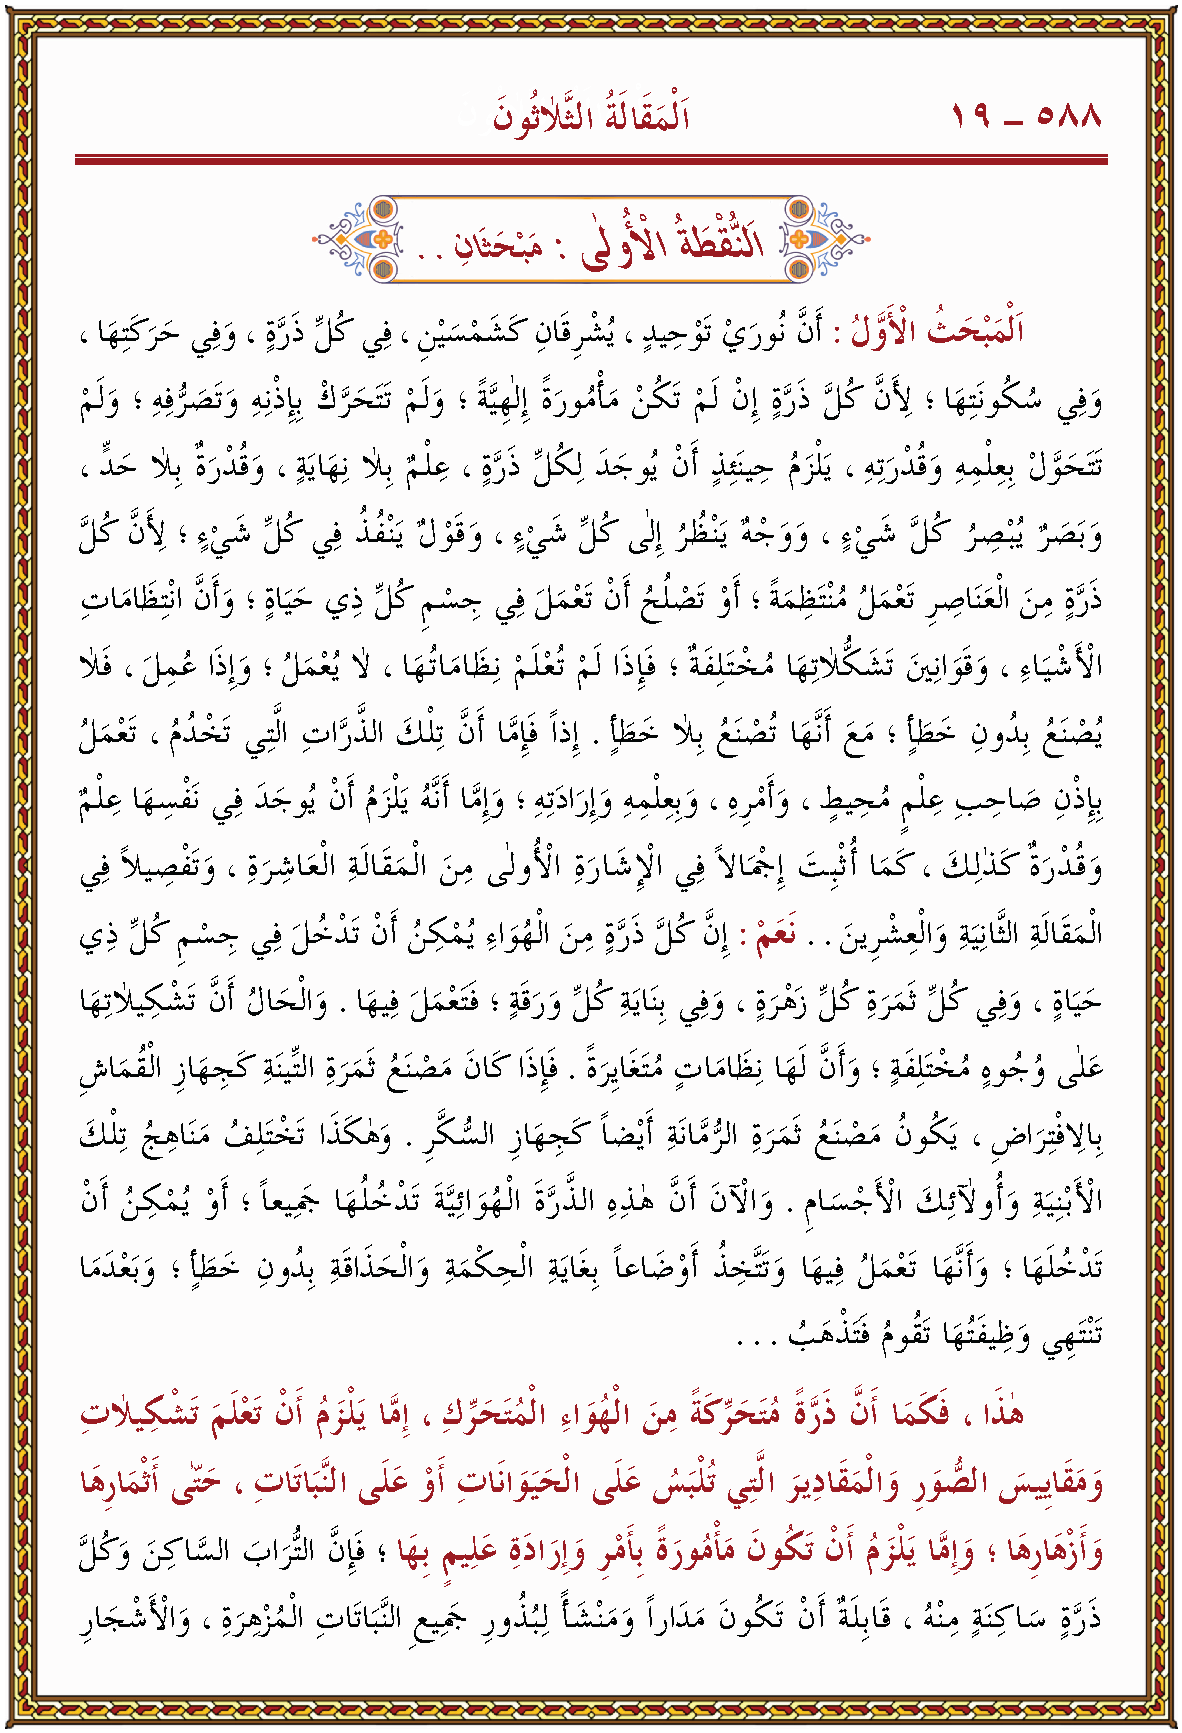 ٥٨٨ ـ ١٩ اَلْمَقَالَةُ الثَّلاٰثُونَ
اَلنُّقْطَةُ الْأُولٰى : مَبْحَثَانِ . .
اَلْمَبْحَثُ الْأَوَّلُ : أَنَّ نُورَيْ تَوْحِيدٍ ، يُشْرِقَانِ كَشَمْسَيْنِ ، فِي كُلِّ ذَرَّةٍ ، وَفِي حَرَكَتِهَا ،
وَفِي سُكُونَتِهَا ؛ لِأَنَّ كُلَّ ذَرَّةٍ إِنْ لَمْ تَكُنْ مَأْمُورَةً إِلٰهِيَّةً ؛ وَلَمْ تَتَحَرَّكْ بِإِذْنِهِ وَتَصَرُّفِهِ ؛ وَلَمْ
تَتَحَوَّلْ بِعِلْمِهِ وَقُدْرَتِهِ ، يَلْزَمُ حِينَئِذٍ أَنْ يُوجَدَ لِكُلِّ ذَرَّةٍ ، عِلْمٌ بِلاٰ نِهَايَةٍ ، وَقُدْرَةٌ بِلاٰ حَدٍّ ،
وَبَصَرٌ يُبْصِرُ كُلَّ شَيْءٍ ، وَوَجْهٌ يَنْظُرُ إِلٰى كُلِّ شَيْءٍ ، وَقَوْلٌ يَنْفُذُ فِي كُلِّ شَيْءٍ ؛ لِأَنَّ كُلَّ
ذَرَّةٍ مِنَ الْعَنَاصِرِ تَعْمَلُ مُنْتَظِمَةً ؛ أَوْ تَصْلُحُ أَنْ تَعْمَلَ فِي جِسْمِ كُلِّ ذِي حَيَاةٍ ؛ وَأَنَّ انْتِظَامَاتِ
الْأَشْيَاءِ ، وَقَوَانِينَ تَشَكُّلاٰتِهَا مُخْتَلِفَةٌ ؛ فَإِذَا لَمْ تُعْلَمْ نِظَامَاتُهَا ، لاٰ يُعْمَلُ ؛ وَإِذَا عُمِلَ ، فَلاٰ
يُصْنَعُ بِدُونِ خَطَأٍ ؛ مَعَ أَنَّهَا تُصْنَعُ بِلاٰ خَطَأٍ . إِذاً فَإِمَّا أَنَّ تِلْكَ الذَّرَّاتِ الَّتِي تَخْدُمُ ، تَعْمَلُ
بِإِذْنِ صَاحِبِ عِلْمٍ مُحِيطٍ ، وَأَمْرِهِ ، وَبِعِلْمِهِ وَإِرَادَتِهِ ؛ وَإِمَّا أَنَّهُ يَلْزَمُ أَنْ يُوجَدَ فِي نَفْسِهَا عِلْمٌ
وَقُدْرَةٌ كَذٰلِكَ ، كَمَا أُثْبِتَ إِجْمَالاً فِي الْإِشَارَةِ الْأُولٰى مِنَ الْمَقَالَةِ الْعَاشِرَةِ ، وَتَفْصِيلاً فِي
الْمَقَالَةِ الثَّانِيَةِ وَالْعِشْرِينَ . . نَعَمْ : إِنَّ كُلَّ ذَرَّةٍ مِنَ الْهُوَاءِ يُمْكِنُ أَنْ تَدْخُلَ فِي جِسْمِ كُلِّ ذِي
حَيَاةٍ ، وَفِي كُلِّ ثَمَرَةِ كُلِّ زَهْرَةٍ ، وَفِي بَنَايَةِ كُلِّ وَرَقَةٍ ؛ فَتَعْمَلَ فِيهَا . وَالْحَالُ أَنَّ تَشْكِيلاٰتِهَا
عَلٰى وُجُوهٍ مُخْتَلِفَةٍ ؛ وَأَنَّ لَهَا نِظَامَاتٍ مُتَغَايِرَةً . فَإِذَا كَانَ مَصْنَعُ ثَمَرَةِ التِّينَةِ كَجِهَازِ الْقُمَاشِ
بِالِافْتِرَاضِ ، يَكُونُ مَصْنَعُ ثَمَرَةِ الرُّمَّانَةِ أَيْضاً كَجِهَازِ السُّكَّرِ . وَهٰكَذَا تَخْتَلِفُ مَنَاهِجُ تِلْكَ
الْأَبْنِيَةِ وَأُولٰۤئِكَ الْأَجْسَامِ . وَالْآنَ أَنَّ هٰذِهِ الذَّرَّةَ الْهُوَائِيَّةَ تَدْخُلُهَا جَمِيعاً ؛ أَوْ يُمْكِنُ أَنْ
تَدْخُلَهَا ؛ وَأَنَّهَا تَعْمَلُ فِيهَا وَتَتَّخِذُ أَوْضَاعاً بِغَايَةِ الْحِكْمَةِ وَالْحَذَاقَةِ بِدُونِ خَطَأٍ ؛ وَبَعْدَمَا
تَنْتَهِي وَظِيفَتُهَا تَقُومُ فَتَذْهَبُ . . .
هٰذَا ، فَكَمَا أَنَّ ذَرَّةً مُتَحَرِّكَةً مِنَ الْهُوَاءِ الْمُتَحَرِّكِ ، إِمَّا يَلْزَمُ أَنْ تَعْلَمَ تَشْكِيلاٰتِ
وَمَقَايِيسَ الصُّوَرِ وَالْمَقَادِيرَ الَّتِي تُلْبَسُ عَلَى الْحَيَوَانَاتِ أَوْ عَلَى النَّبَاتَاتِ ، حَتّٰى أَثْمَارِهَا
وَأَزْهَارِهَا ؛ وَإِمَّا يَلْزَمُ أَنْ تَكُونَ مَأْمُورَةً بِأَمْرِ وَإِرَادَةِ عَلِيمٍ بِهَا ؛ فَإِنَّ التُّرَابَ السَّاكِنَ وَكُلَّ
ذَرَّةٍ سَاكِنَةٍ مِنْهُ ، قَابِلَةٌ أَنْ تَكُونَ مَدَاراً وَمَنْشَأً لِبُذُورِ جَمِيعِ النَّبَاتَاتِ الْمُزْهِرَةِ ، وَالْأَشْجَارِ